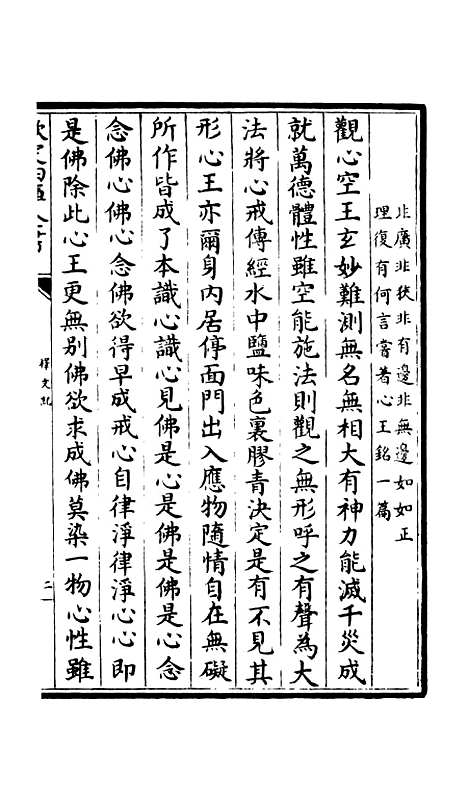 非廣非狹非有邊非無邊如如正
理復有何言嘗著心王銘一篇
觀心空王玄妙難測無名無相大有神力能滅千災成
就萬德體性雖空能施法則觀之無形呼之有聲為大
法將心戒傳經水中鹽味色裏膠青決定是有不見其
形心王亦爾身內居停面門出入應物隨情自在無礙
所作皆成了本識心識心見佛是心是佛是佛是心念
念佛心佛心念佛欲得早成戒心自律淨律淨心心即
是佛除此心王更無别佛欲求成佛莫染一物心性雖
釋文紀